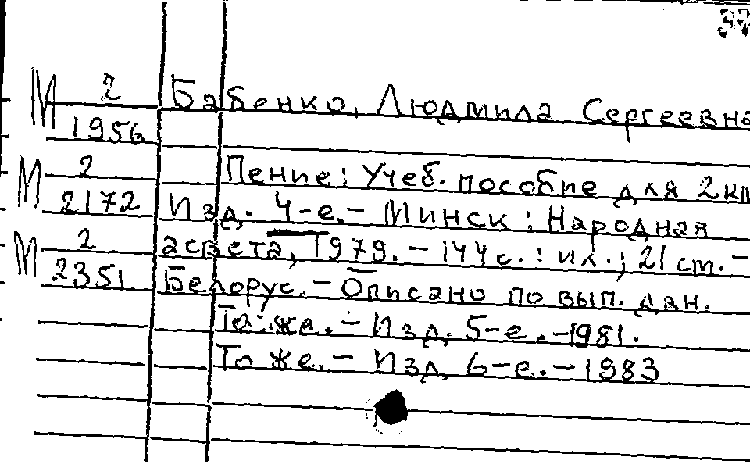 37
М 2/1956 Бабенко, Людмила Сергеевна
М 2/2172 Пение: Учеб. пособие для 2 кл
Изд. 4-е. – Минск: Народная
М 2/2351 асвета, 1979. – 144 с.: ил.; 21 см. –
Белорус. – Описано по вып. дан.
То же. – Изд. 5-е. – 1981.
То же. – Изд. 6-е. – 1983